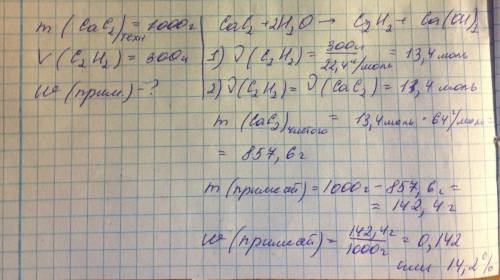 m (CaC₂)техн = 1000г
V (C₂H₂) = 300л
w (прим.) - ?
CaC₂ + 2H₂O → C₂H₂ + Ca(OH)₂
1) ν(C₂H₂) = 300л / 22,4 л/моль = 13,4 моль
2) ν(C₂H₂) = ν(CaC₂) = 13,4 моль
m (CaC₂)чистого = 13,4 моль · 64 г/моль =
= 857,6 г
m (примесей) = 1000г - 857,6 г =
= 142,4 г
w (примесей) = 142,4г / 1000г = 0,142
или 14,2%